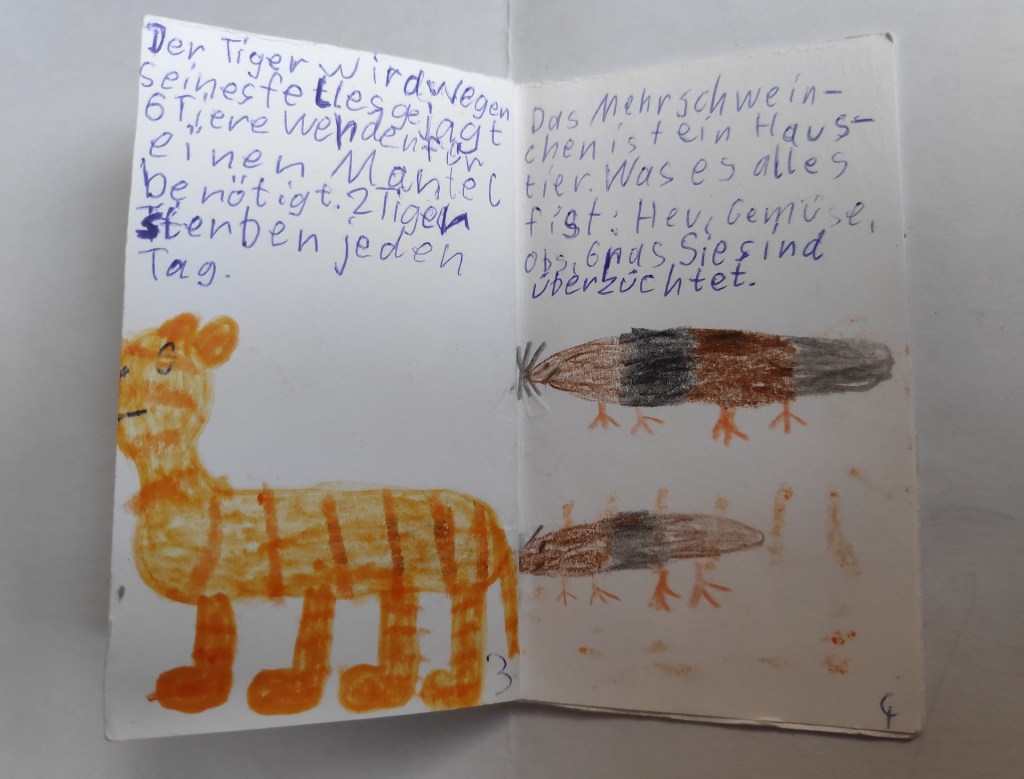 Der Tiger wird wegen
seines felles gejagt
6 Tiere werden für
einen Mantel
benötigt. 2 Tiger
sterben jeden
Tag.
3
Das Mehrschwein-
chen ist ein Haus-
tier. Was es alles
fist: Heu, Gemüse,
obs, Gras, Sie sind
überzüchtet.
4